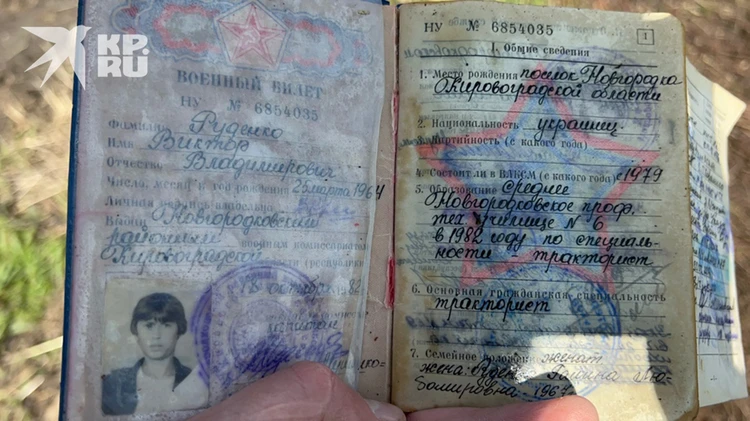 KP.RU
ВОЕННЫЙ БИЛЕТ
НУ № 6854035
Фамилия Руденко
Имя Виктор
Отчество Владимирович
Число, месяц и год рождения 25 марта 1964
Личная подпись владельца
Выдан Новгородковским
районным военным комиссариатом
Кировоградской
области (республики
18 октября 1982
НУ № 6854035
1
I. Общие сведения
1. Место рождения поселок Новгородка
Кировоградской области
2. Национальность украинец
3. Партийность (с какого года)
4. Состоит ли в ВЛКСМ (с какого года) с 1979
5. Образование среднее
Новгородковское проф.
тех училище N 6
в 1982 году по специаль-
ности тракторист
6. Основная гражданская специальность
тракторист
7. Семейное положение женат
жена: Галина
1967